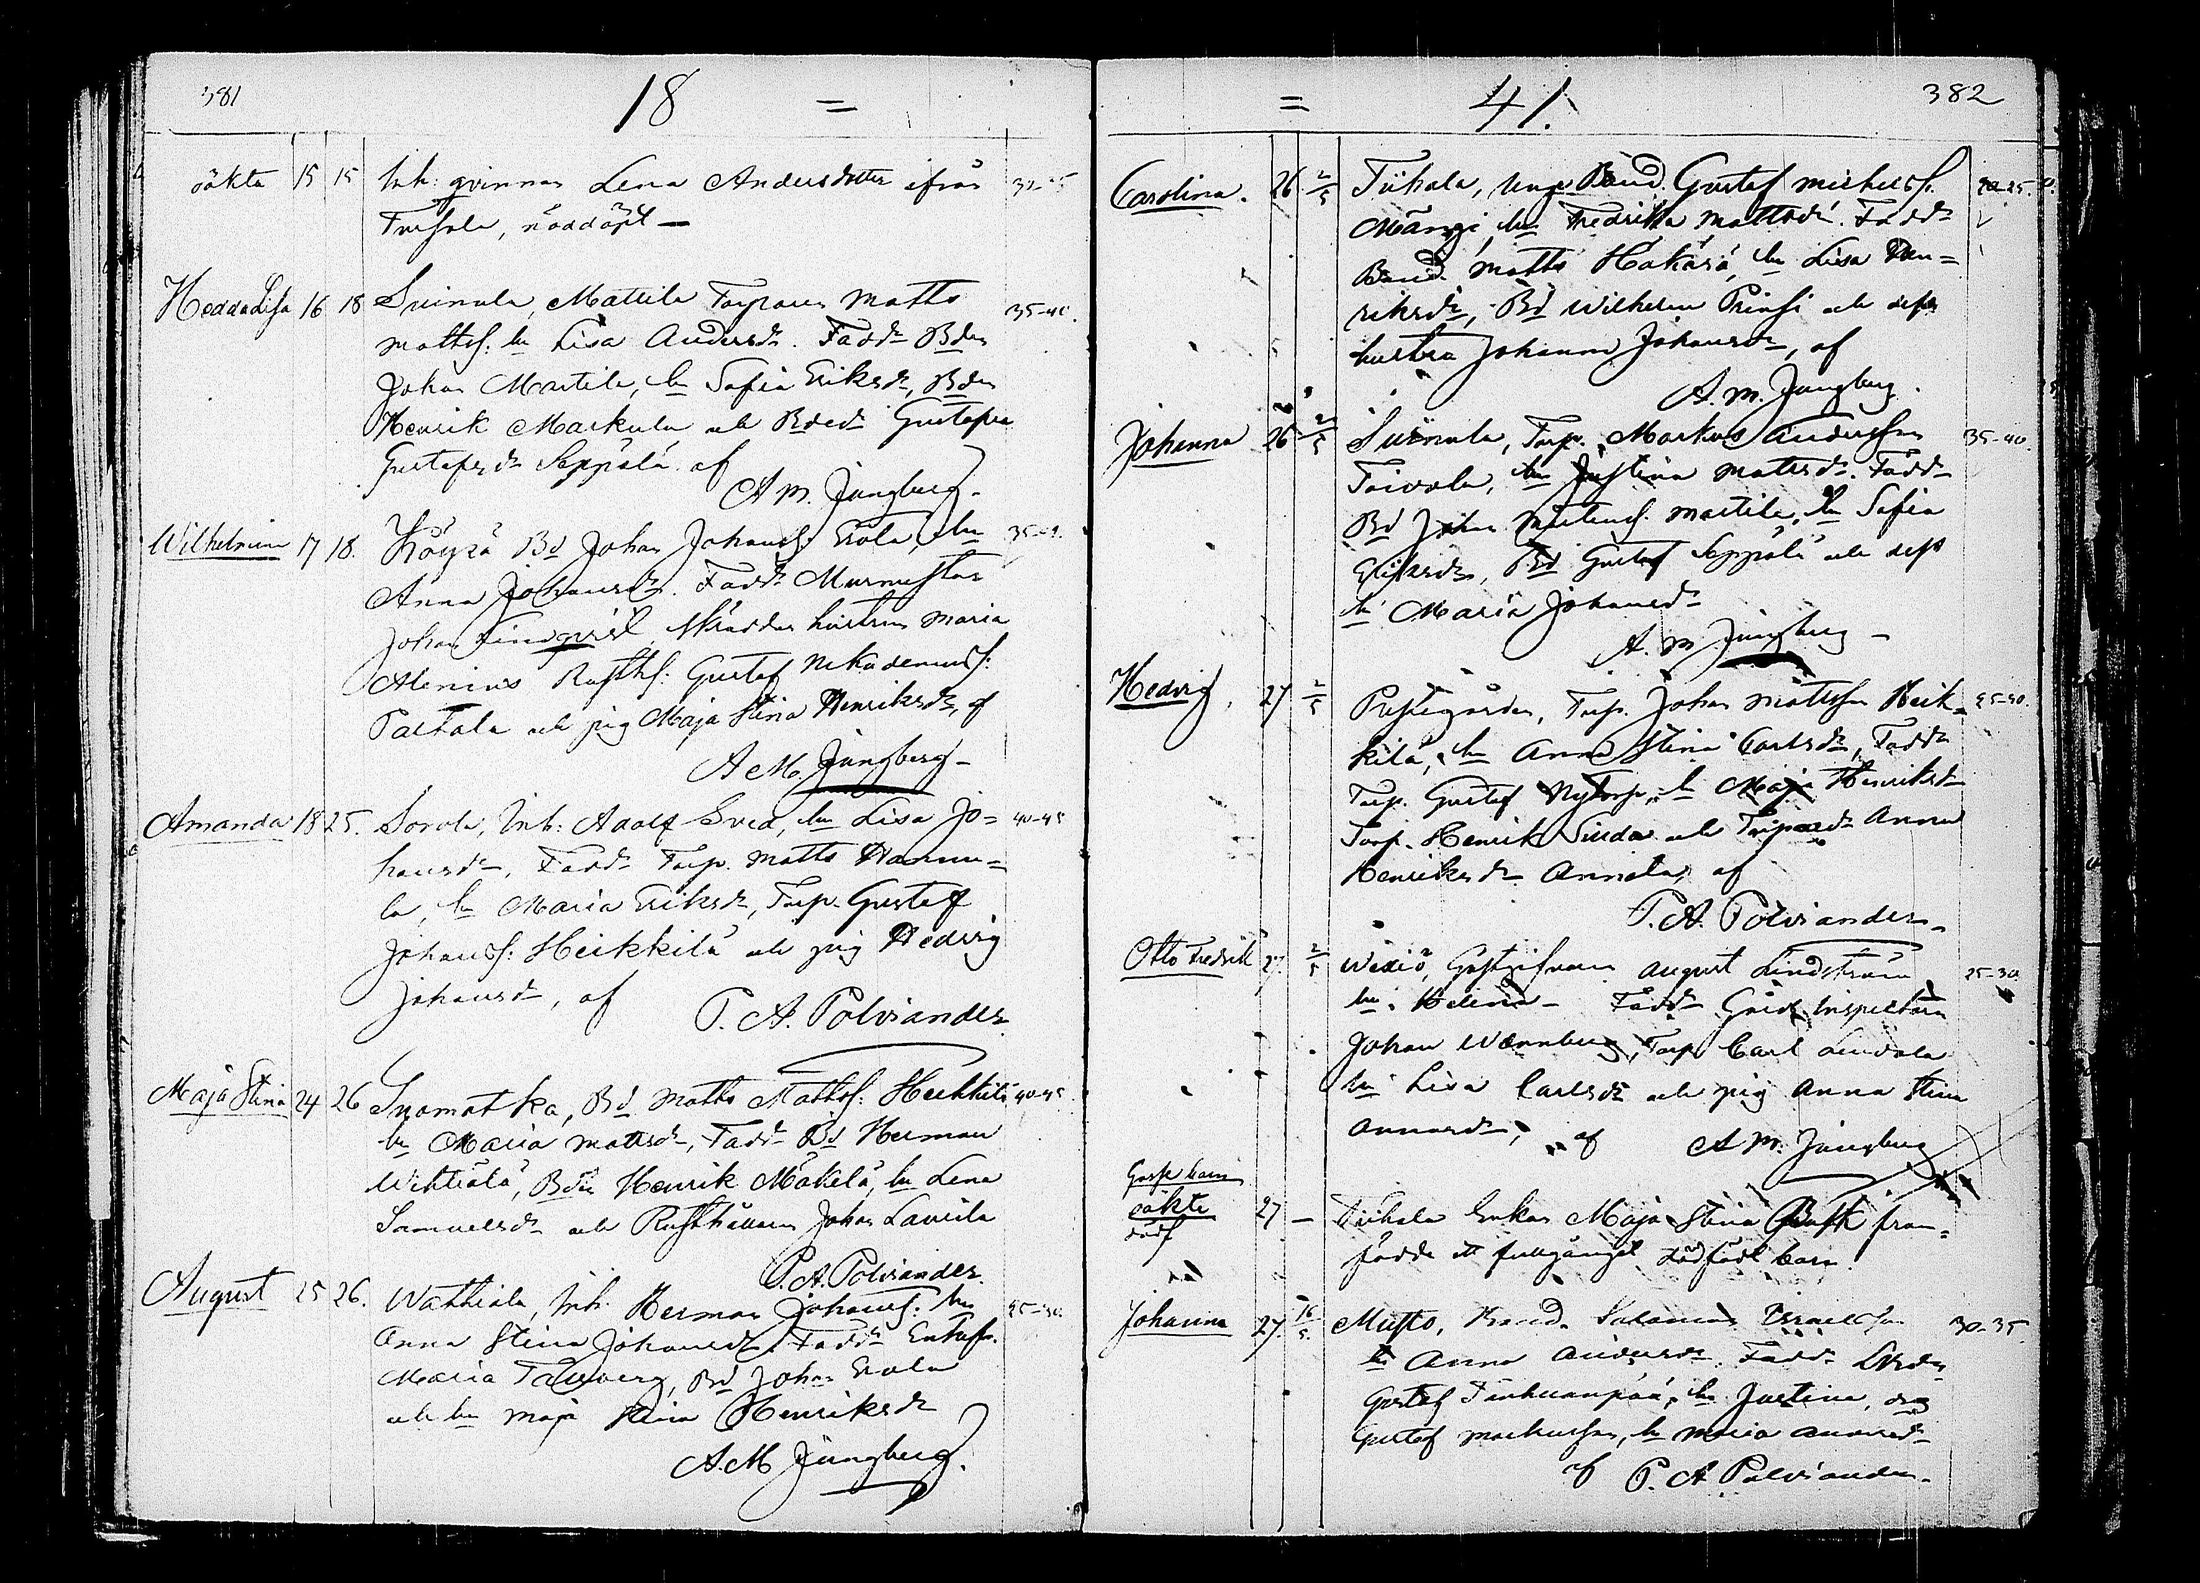 381 18 =
oäkta 15 15 Inh: qvinnan Lena Andersdotter ifrån
nöddöpt —
Hedda Lisa 16 18 Suinula, Mattila Torparen Matts 35-40.
Mattss: hu Lisa Andersdr. Faddr Bden
Johan Martila, hu Sofia Eriksdr, Bden
Henrik Markula och Gustafva
Gustafsdr Seppälä af
A M. Jungberg.
Wilhelmina 17 18. Köyrä Bd Johan Johanss: Erola, hu
Anna Johansdr. Faddr Murmästar
Johan Lindqvist, Skräddar hustrun Maria
Alenius Rusth: Gustaf Nikodemuss:
Paltala och pig Maja Stina Henriksdr, af
A M. Jungberg —
Amanda 18 25. Sorola, Inh: Adolf hu Lisa Jo= 40-45
hansdr, Faddr Torp. Matts Hannu=
la, hu Maria Eriksdr, Torp. Gustaf
Johanss: Heikkilä och pig Hedvig
Johansdr, af
P. A. Polviander
Maja Stina 24 26 Bd Matts Mattss: Heikkilä 40-45.
hu Maria Mattsdr, Faddr Bd Herman
Wihtiälä, Bden Henrik Mäkelä, hu Lena
Samuelsdr och Rusthållaren Johan Laurila
P. A. Polviander.
August 25 26. Wathiala, Inh. Herman Johanss: hu
Anna Stina Johansdr, Faddr
Maria Bd Johan Erola
och hu Maja Stina Henriksdr
A. M Jungberg.
= 41. 382
Carolina. 26 2/5 Tiihala, Unga Bond. Gustaf Michelss.
hu Fredrika Mattsdr. Faddr
Bond. Matts Hakärä, hu Lisa Hen=
riksdr, Bd Wilhelm Prinsi och dess
hustru Johanna Johansdr, af
A. M. Jungberg.
Johanna 26 2/5 Suinula, Torp. Markus Andersson 35-40.
Toivola, hu Justina Mattsdr. Faddr
Bd Johan Mårtenss. Martila, hu Sofia
Eriksdr, Bd Gustaf Seppälä och dess
hu Maria Johansdr
A. M. Jungberg —
Hedvig, 27 2/5 Prestegården, Torp. Johan Mattsson Heik=
kilä, hu Anna Stina Carlsdr, Faddr
Torp. Gustaf Nytorp, hu Maja Henriksdr
Torp. Henrik och Anna
Henriksdr Annila, af
P. A. Polviander.
Otto Fredrik 27. 2/5 Wexiö, Gästgifvaren August Lindström 25-30
hu. Helena — Faddr Gårds Inspektoren
Johan Wænnberg, Torp. Carl
hu Lisa Carlsdr och pig Anna Stina
Annasdr, af A M. Jungberg
Gosse barn
oäkta 27 — Tiihala Enkan Maja Stina fram=
födde ett fullgånget dödfödt barn.
Johanna 27. 16/5. Musto, Bond. Salomon Israelsson 30-35.
hu Anna Andersdr. Faddr
Gustaf hu Justina, drg
Gustaf Markusson, hu Maria
af P. A. Polviander.